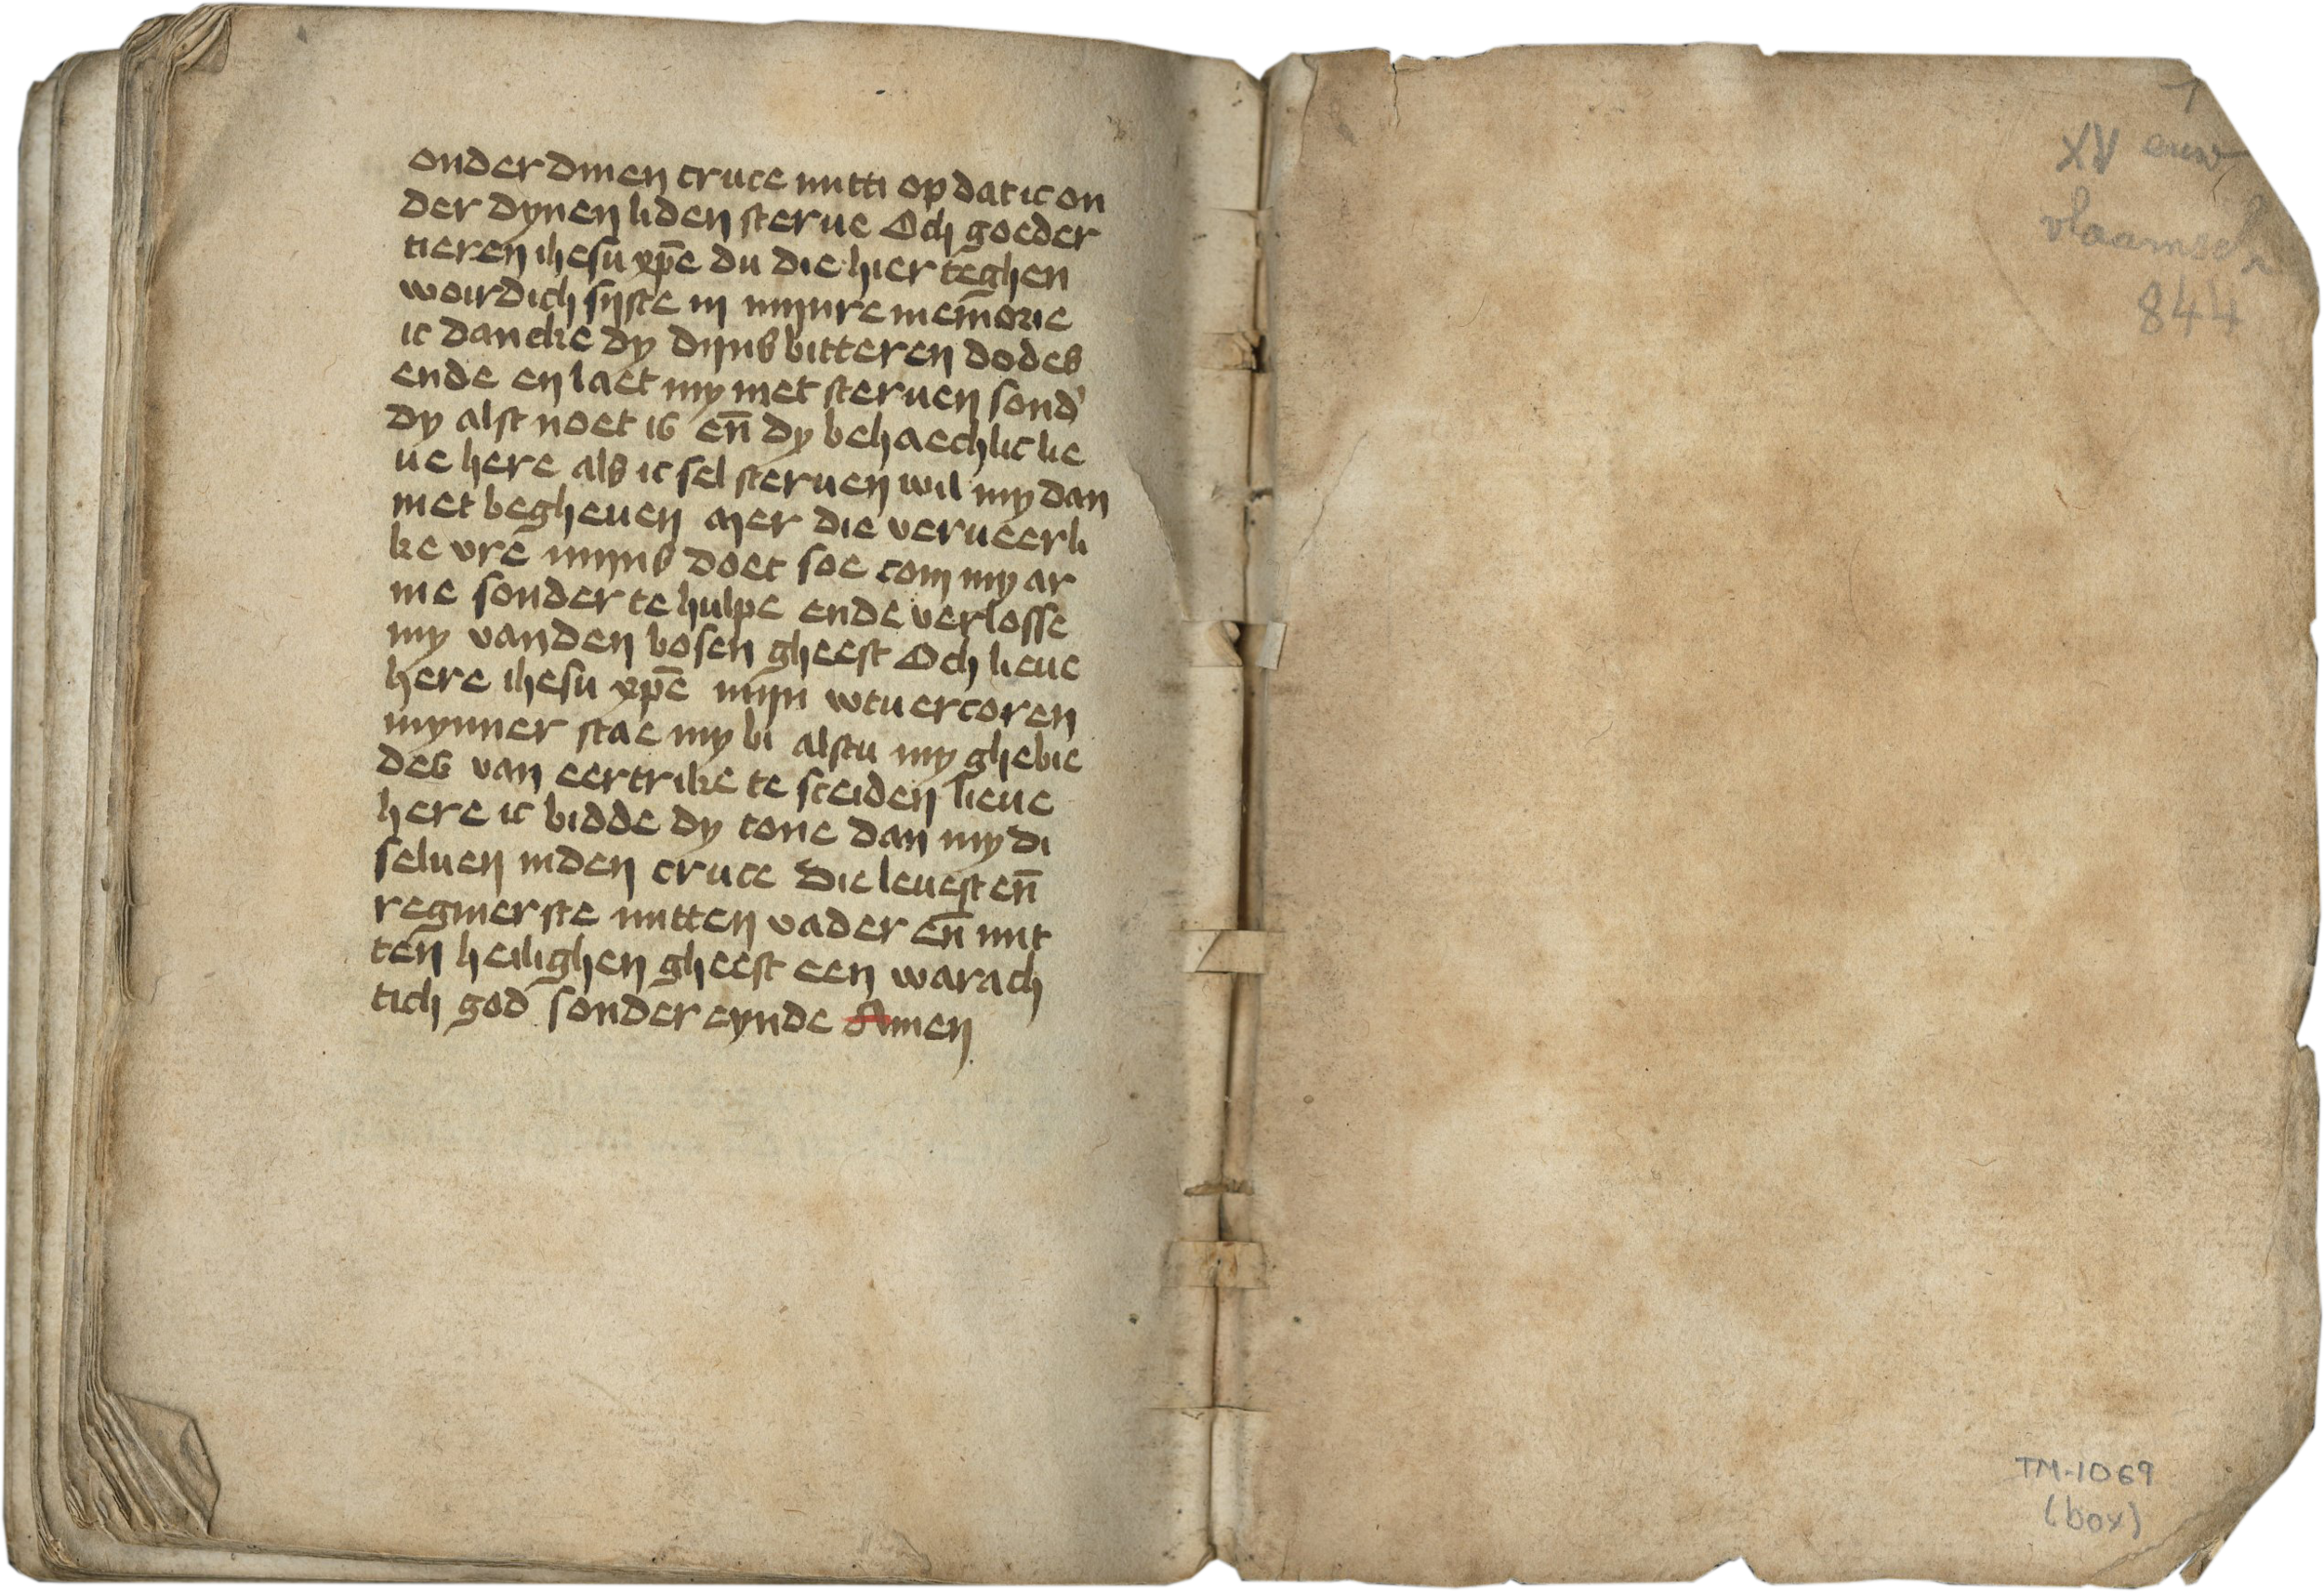 onder dinen cruce mitti op dat ic on
der dynen liden sterue Och goeder
tieren ihesu xp̄e du die hier teghen
woirdich sijste in mijnre mem̄orie
ic dancke dy dijns bitteren dodes
ende en laet my niet steruen sond'
dy alst noet is en̄ dy behaechlic lie
ue here als ic sel steruen wil my dan
niet begheuen mer die verueerli
ke vre mijns doet soe com my ar
me sonder te hulpe ende verlosse
my vanden bosen gheest Och lieue
here ihesu xp̄e mijn wtuercoren
mynner stae my bi alstu my ghebie
des van eertrike te sceiden lieue
here ic bidde dy tone dan my di
seluen inden cruce die leuest en̄
regnierste mitten vader en̄ mit
ten heilighen gheest een warach
tich god sonder eynde Amen
XV eeuw
vlaamsch
844
TM-1069
(box)